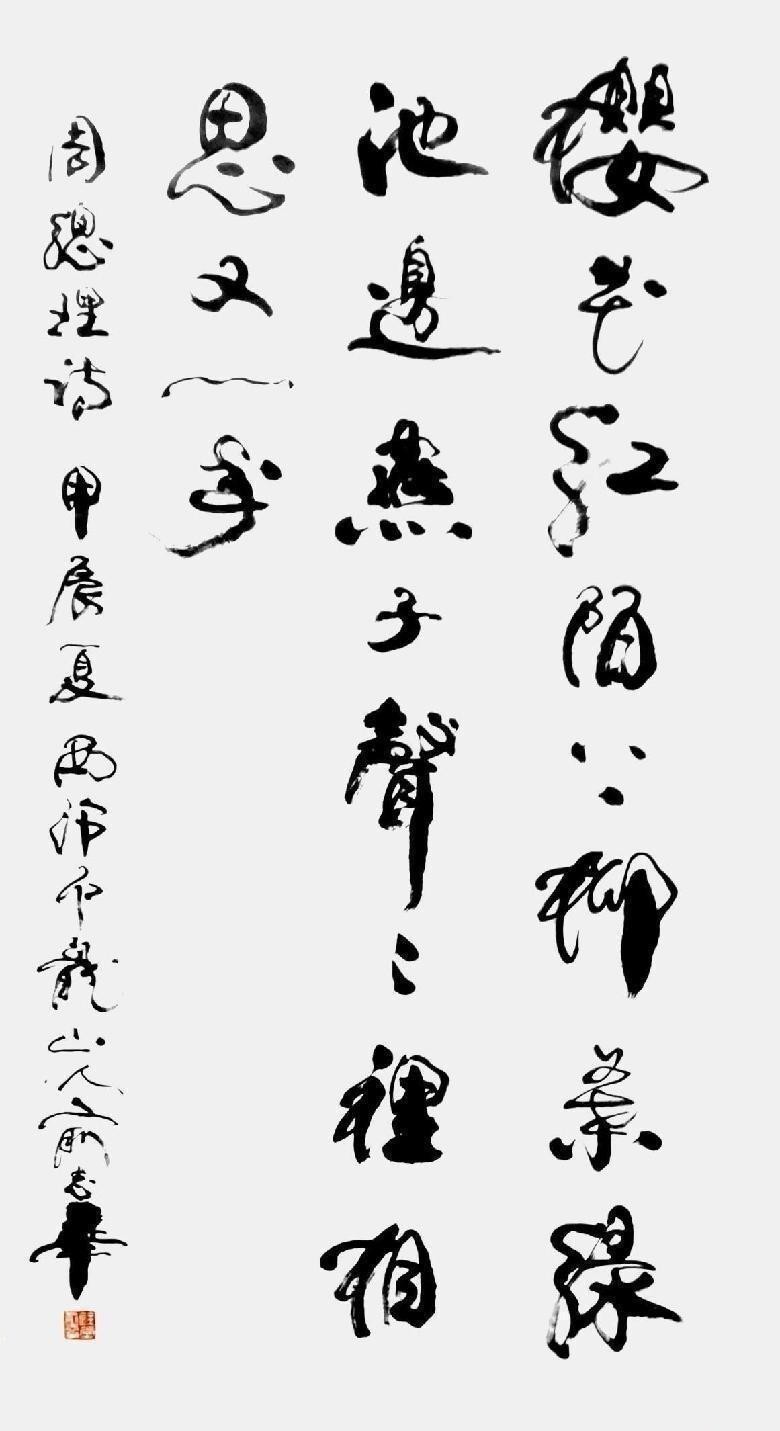 櫻花紅陌上柳葉緑
池邊燕子聲〻裡相
思又一年
周總理詩 甲辰夏 西泠 龍山人俞志華